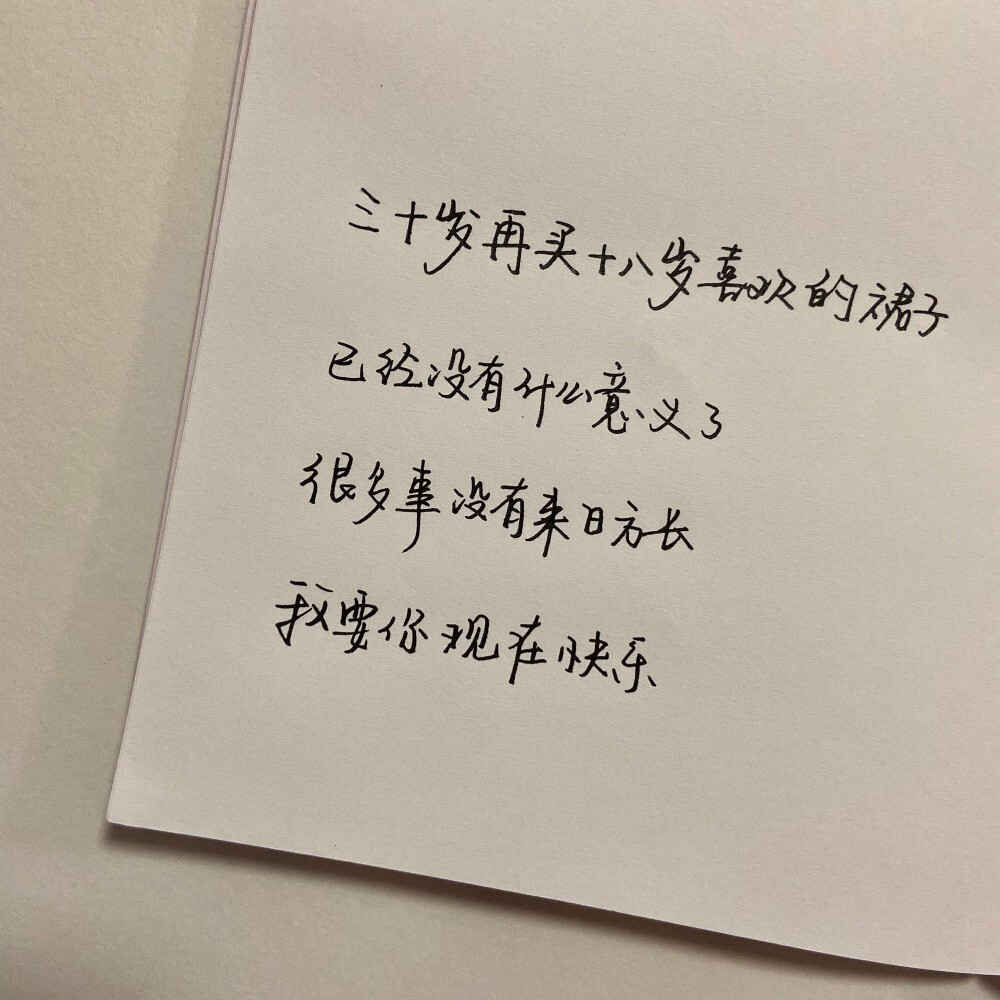 三十岁再买十八岁喜欢的裙子
已经没有什么意义了
很多事没有来日方长
我要你现在快乐